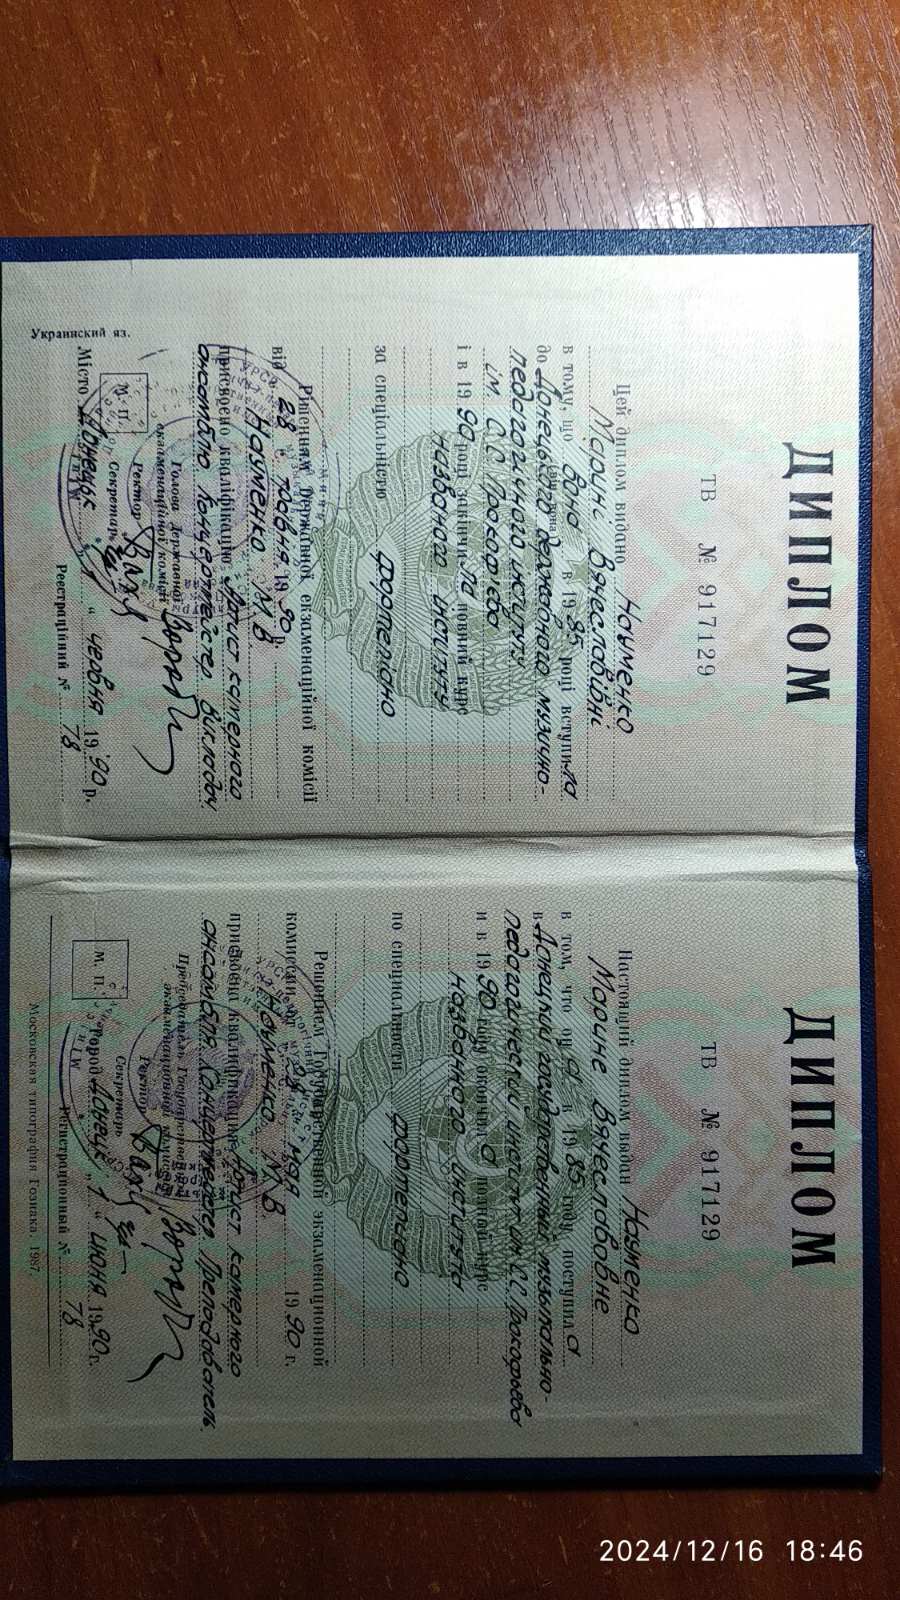 ДИПЛОМ
ТВ № 917129
Цей диплом видано Науменко
Марині Вячеславівні
в тому, що вона в 1985 році вступила
до Донецького державного музично-
педагогічного інституту
ім. С.С. Прокоф'єва
і в 1990 році закінчила повний курс
названого інституту
за спеціальністю фортепіано
Рішенням Державної екзаменаційної комісії
від 28 травня 1990 р.
Науменко М.В.
присвоєно кваліфікацію Артист камерного
ансамблю Концертмейстер Викладач
Голова Державної
екзаменаційної комісії
Ректор
Секретар
М. П.
Місто Донецьк червня 1990 р.
Реєстраційний № 78
Украинский яз.
ДИПЛОМ
ТВ № 917129
Настоящий диплом выдан Науменко
Марине Вячеславовне
в том, что она в 1985 году поступила
в Донецкий государственный музыкально-
педагогический институт им. С.С. Прокофьева
и в 1990 году окончила полный курс
названного института
по специальности фортепиано
Решением Государственной экзаменационной
комиссии от 28 мая 1990 г.
Науменко М.В.
присвоена квалификация Артист камерного
ансамбля Концертмейстер Преподаватель
Председатель Государственной
экзаменационной комиссии
Ректор
Секретарь
М. П.
Город Донецк „1“ июня 1990 г.
Регистрационный № 78
Московская типография Гознака. 1987.
2024/12/16 18:46